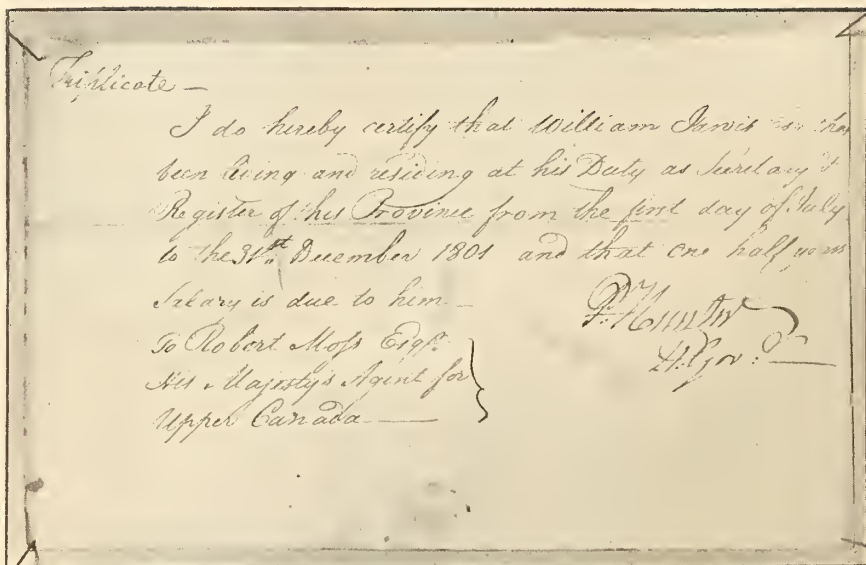 Triplicate —
I do hereby certify that William Jarvis has
been living and residing at his Duty as Secretary &
Register of this Province from the first day of July
to the 31st. December 1801 and that one half years
Salary is due to him —
P. Hunter
Lt. Gov.r
To Robert Moſs Esqr.
His Majesty's Agent for
Upper Canada —